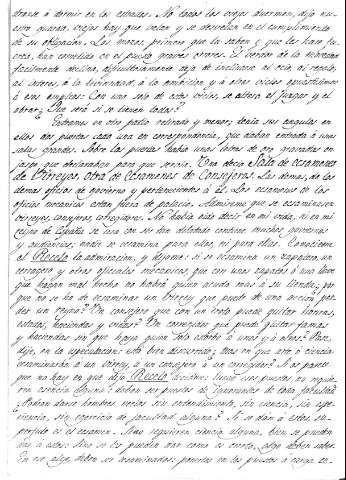 dranse á dormir en los estrados. No todos los viejos duermen, dijo nu-
estra guarda, viejos hay que velan y se desvelan en el cumplimiento
de su obligacion. Los mozos primero que la saben y que les han fu-
era, han cometido en el puesto graves errores. El verdor de la
facilmente declina, dificultosamente deja de inclinarse al ocio, al regalo,
al interes, á la liviandad, á la ambicion y á otros vicios
á esos empleos. Con uno solo de estos vicios, se altera el juzgar y el
obrar; Que será si se tienen todos?
Entramos en otro patio retirado y menor; tenia sus angulos en
ellos dos puertas cada una en correspondencia, que daban entrada á unas
salas grandes. Sobre las puertas habia unas letras de oro gravadas en
jaspe que declaraban para que servia. Una decia Sala de ecsamenes
de Virreyes, otra de Ecsamenes de Consejeros. Las demas, de los
demas oficios de govierno y pertenecientes á él. Los ecsamenes en los
oficios mecanicos estan fuera de palacio. Admireme que se ecsaminasen
virreyes, consejeros, corregidores. No habia oido decir en mi vida, ni en mi
reyno de España se usa con ser tan dilatado contiene muchos goviernos
y audiencias; nadie se ecsamina para ellos, ni para ellas. Conocieron
el Recelo la admiracion, y dijome: si se ecsamina un zapatero, un
cerragero y otros oficiales mecanicos que con unos zapatos ó una llave
que hagan mal hecho no habrá quien acuda mas á su tienda; por
que no se ha de ecsaminar un Virrey que puede de una accion per-
der un reyno? Un consejero que con un voto puede quitar honras,
estados, haciendas y vidas? Un corregidor que puede quitar famas
y haciendas sin que haya quien solo estorbe á unos y á otros? Pase,
dije, en la especulacion: está bien discurrido; mas en que arte ó ciencia
ecsaminarán á un virrey, á un consejero ó á un corregidor? No os parece
que no hay en que dijo Recelo decidme: luego sus puestos no requie-
ren esencia alguna? deben ser puestos de ignorantes de toda facultad?
Podran darse hombres necios sin entendimiento, sin ciencia, sin espe-
riencia, sin egercicio de facultad alguna? Si se dan á estos su-
perfluo es el ecsamen. Sino requieren ciencia alguna, bien se pueden
dar á estos: Sino se les pueden dar como es cierto, algo deben saber.
En ese algo deben ser ecsaminados: ponerlos en los puestos á carga ce-